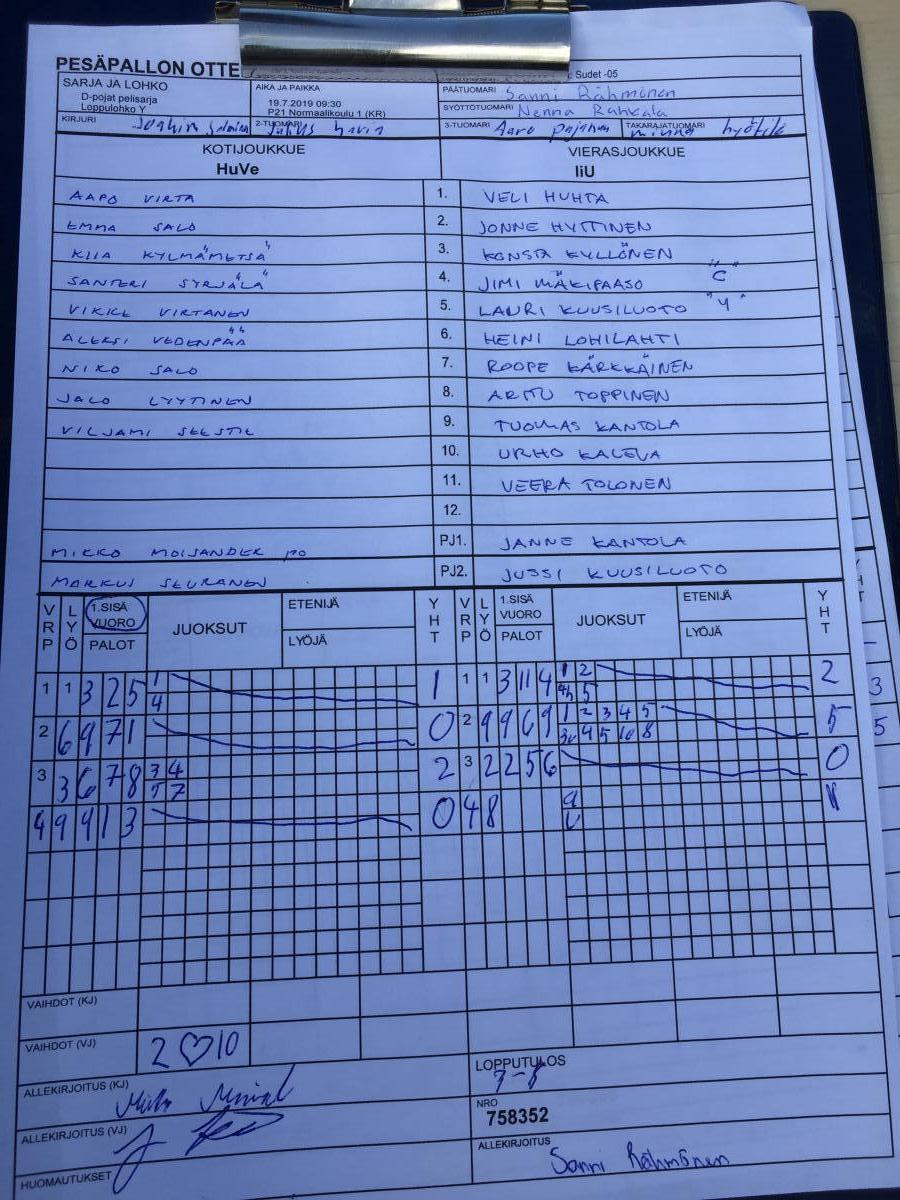 PESÄPALLON OTTE
: Sudet -05
SARJA JA LOHKO
D-pojat pelisarja
Loppulohko Y
AIKA JA PAIKKA
19.7.2019 09:30
P21 Normaalikoulu 1 (KR)
PÄÄTUOMARI Sanni Rähmönen
SYÖTTÖTUOMARI Nenna Rahkala
KIRJURI
2-TUOMARI
3-TUOMARI Aaro
TAKARAJATUOMARI Minna
KOTIJOUKKUE
HuVe
VIERASJOUKKUE
IiU
AAPO VIRTA 1. VELI HUHTA
EMMA SALO 2. JONNE HYTTINEN
KIIA KYLMÄMETSÄ 3. KONSTA KYLLÖNEN
SANTERI SYRJÄLÄ 4. JIMI MÄKIPAASO "C"
VIKKE VIRTANEN 5. LAURI KUUSILUOTO "V"
ALEKSI VEDENPÄÄ 6. HEINI LOHILAHTI
NIKO SALO 7. ROOPE KÄRKKÄINEN
JALO LYYTINEN 8. ARTTU TOPPINEN
VILJAMI 9. TUOMAS KANTOLA
10. URHO KALEVA
11. VEERA TOLONEN
12.
MIKKO MOISANDER PJ1. JANNE KANTOLA
MARKUS SEURANEN PJ2. JUSSI KUUSILUOTO
VRP LYÖ 1.SISÄ VUORO PALOT JUOKSUT ETENIJÄ LYÖJÄ YHT VRP LYÖ 1.SISÄ VUORO PALOT JUOKSUT ETENIJÄ LYÖJÄ YHT
1 1 3 2 5 1 4 1 1 1 3 11 4 1 2 5 2
2 6 9 7 1 0 2 9 9 6 9 1 2 3 4 5 9 5 10 8 5
3 3 6 7 8 3 4 5 7 2 3 2 2 5 6 0
4 9 9 1 3 0 4 8
VAIHDOT (KJ)
VAIHDOT (VJ) 2 ♡ 10
ALLEKIRJOITUS (KJ)
ALLEKIRJOITUS (VJ)
HUOMAUTUKSET
LOPPUTULOS
NRO
758352
ALLEKIRJOITUS
Sanni Rähmönen